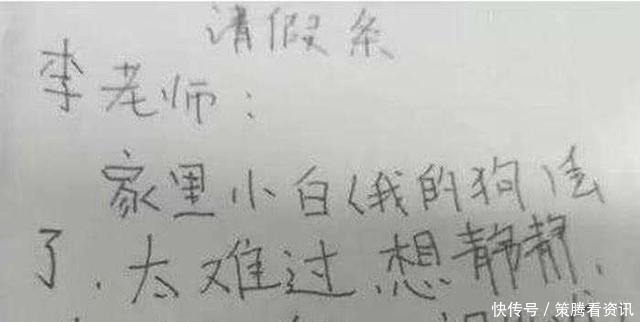 请假条
李老师：
家里小白(我的狗)去
了.太难过.想静静.
快传号／策腾看资讯